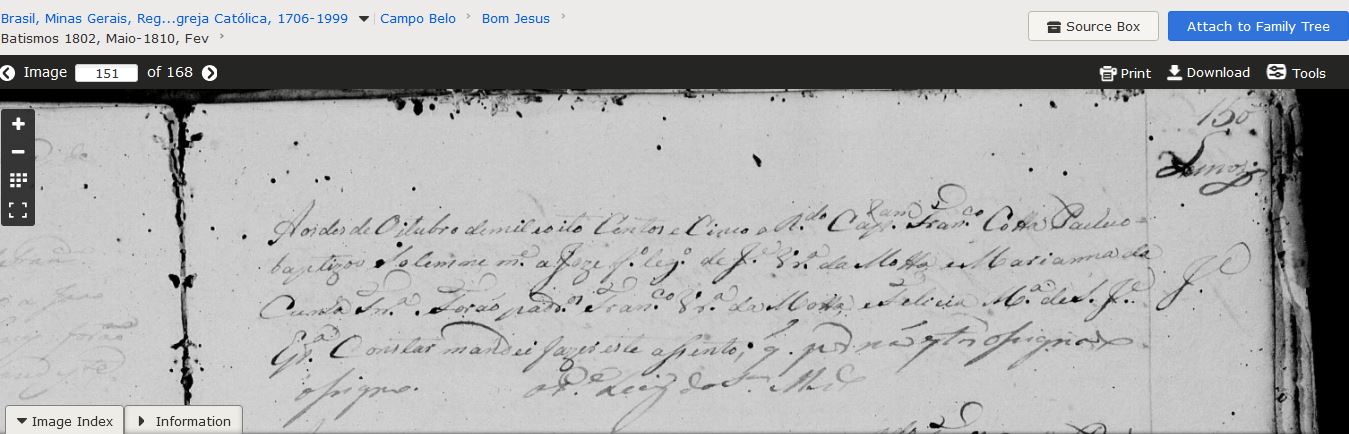 Brasil, Minas Gerais, Reg...greja Católica, 1706-1999
Campo Belo
Bom Jesus
Batismos 1802, Maio-1810, Fev
Source Box
Attach to Family Tree
Image 151 of 168
Print
Download
Tools
150
Aos des de Oitubro de mil e oito Centos e Cinco o R.do Cap.am Fran.co Cotta Pacheco
baptizou Solemne m.e a Joze f.o leg.o de J.e Vr.a da Motta e Marianna da
Cunha Snr.a forão padr.os Fran.co Vr.a da Motta e Felicia M.a de S. J.e
J.e
E p.a Constar mandei fazer este assento, q. por não
assigno.
Image Index
Information